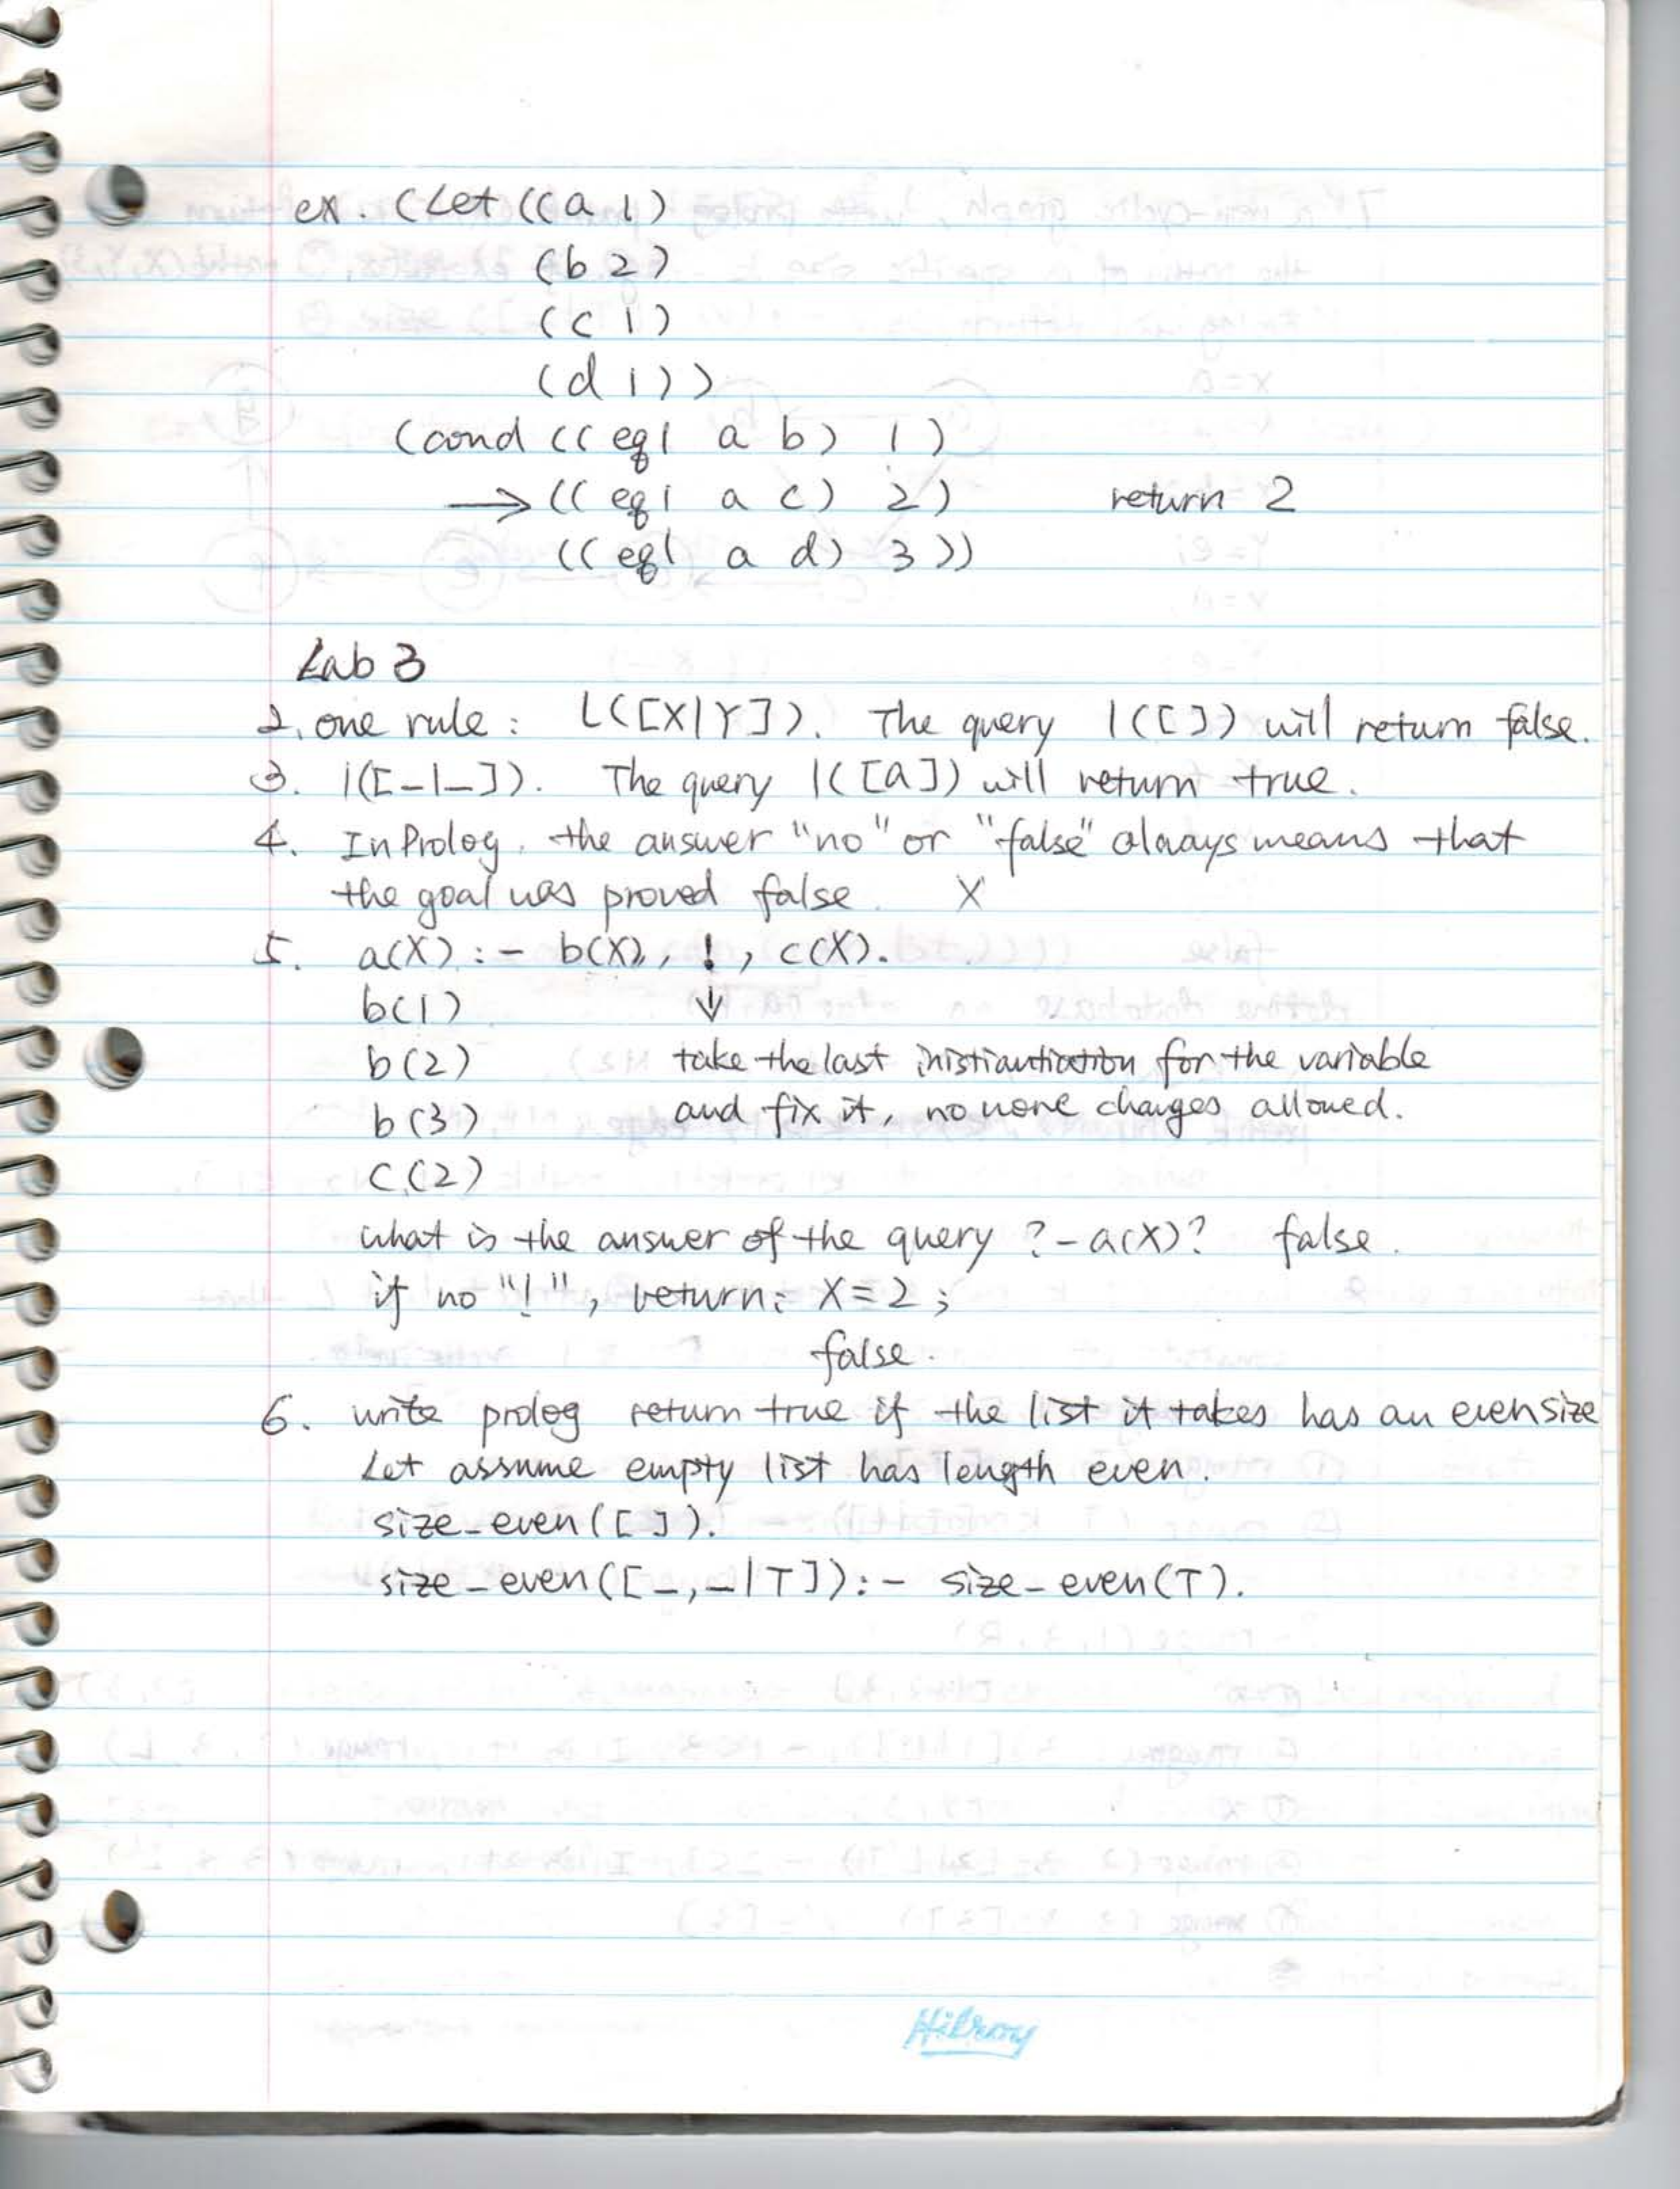 ex. (Let ((a 1)
(b 2)
(c 1)
(d 1))
(cond ((eql a b) 1)
→ ((eql a c) 2) return 2
((eql a d) 3))
Lab 3
2. one rule: L([X|Y]). The query l([]) will return false.
3. l([_|_]). The query l([a]) will return true.
4. In Prolog, the answer "no" or "false" always means that
the goal was proved false. X
5. a(X) :- b(X), !, c(X).
b(1) ↓
b(2) take the last inistiantiation for the variable
b(3) and fix it, no more changes allowed.
c(2)
what is the answer of the query ?- a(X)? false.
if no "!", return: X=2;
false.
6. write prolog return true if the list it takes has an even size
Let assume empty list has length even.
size_even([]).
size_even([_,_|T]):- size_even(T).
Hilroy